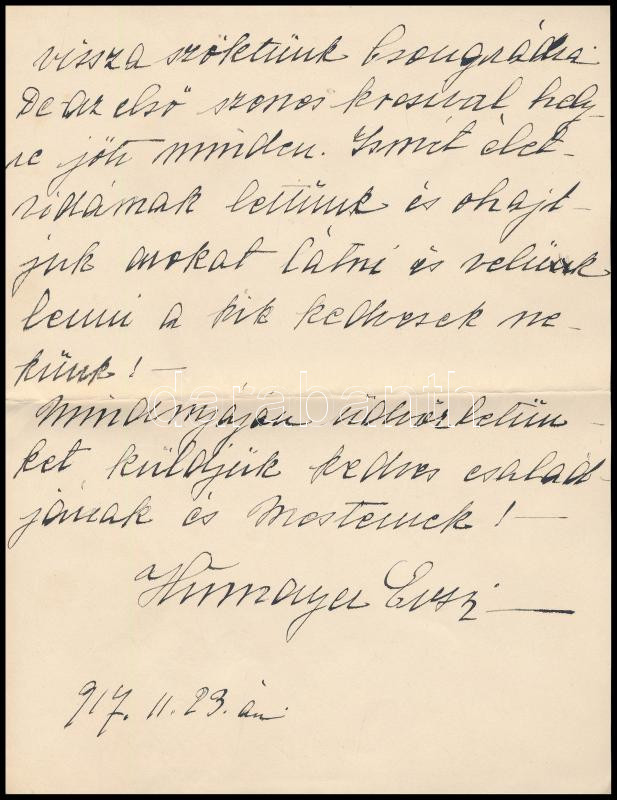 vissza szöktünk Csongrádra.
De az első szenes kocsival hely-
re jött minden. Ismét élet-
vidámak lettünk és ohajt-
juk azokat látni és velünk
lenni a kik kedvesek ne-
künk! –
Mindnyájan üdvözletün-
ket küldjük kedves család-
jának és Mesternek! –
Evszi –
917. 11. 23. án.
darabanth